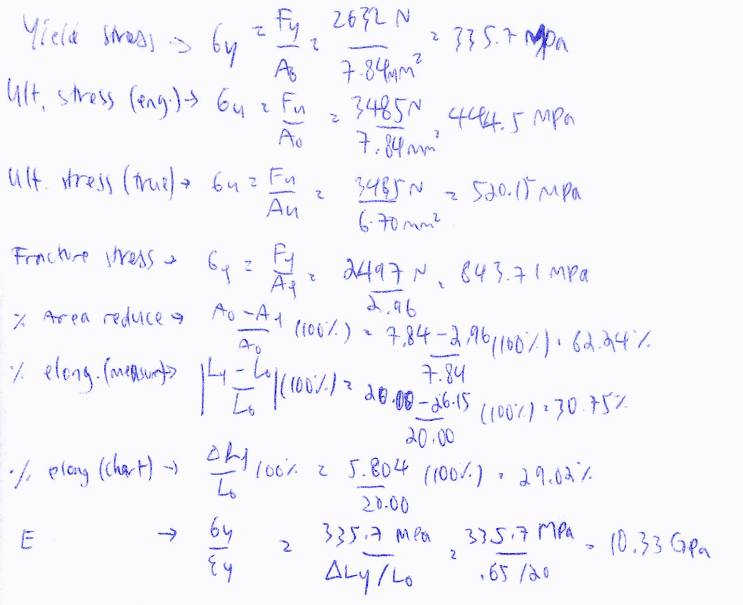 Yield stress → σy = Fy/A0 = 2632 N/7.84mm² = 335.7 Mpa
Ult. stress (eng.) → σu = Fu/A0 = 3485N/7.84mm² 444.5 MPa
Ult. stress (true) → σu = Fu/Au = 3485N/6.70mm² = 520.15 MPa
Fracture stress → σf = Ff/Af = 2497 N/2.96 = 843.71 MPa
% Area reduce → A0 - Af/A0 (100%) = 7.84 - 2.96/7.84 (100%) = 62.24%
% elong. (measure) → |Lf - L0/L0|(100%) = 20.00 - 26.15/20.00 (100%) = 30.75%
% elong (chart) → ΔLf/L0 100% = 5.804/20.00 (100%) = 29.02%
E → σy/εy = 335.7 MPa/ΔLy/L0 = 335.7 MPa/.65/20 = 10.33 GPa